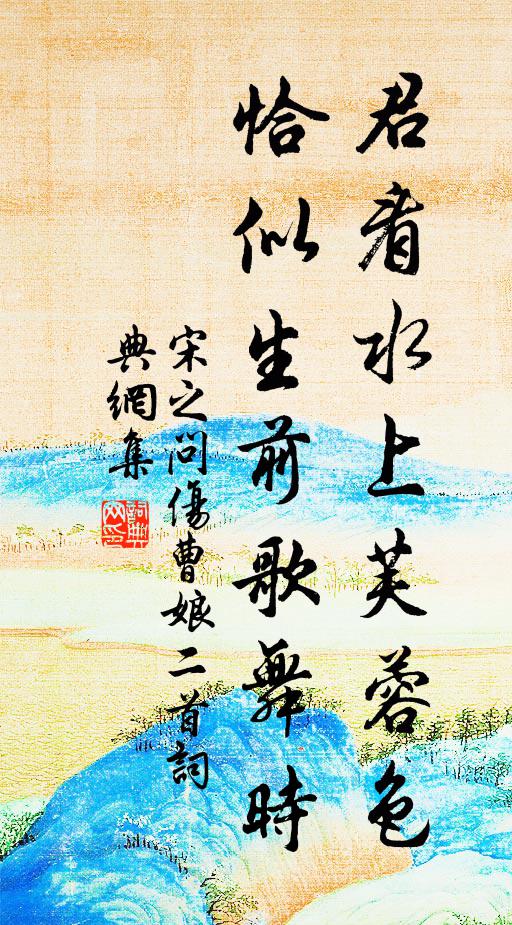 君看水上芙蓉色
恰似生前歌舞時
宋之問傷曹娘二首詞
典網集
詞典
网印